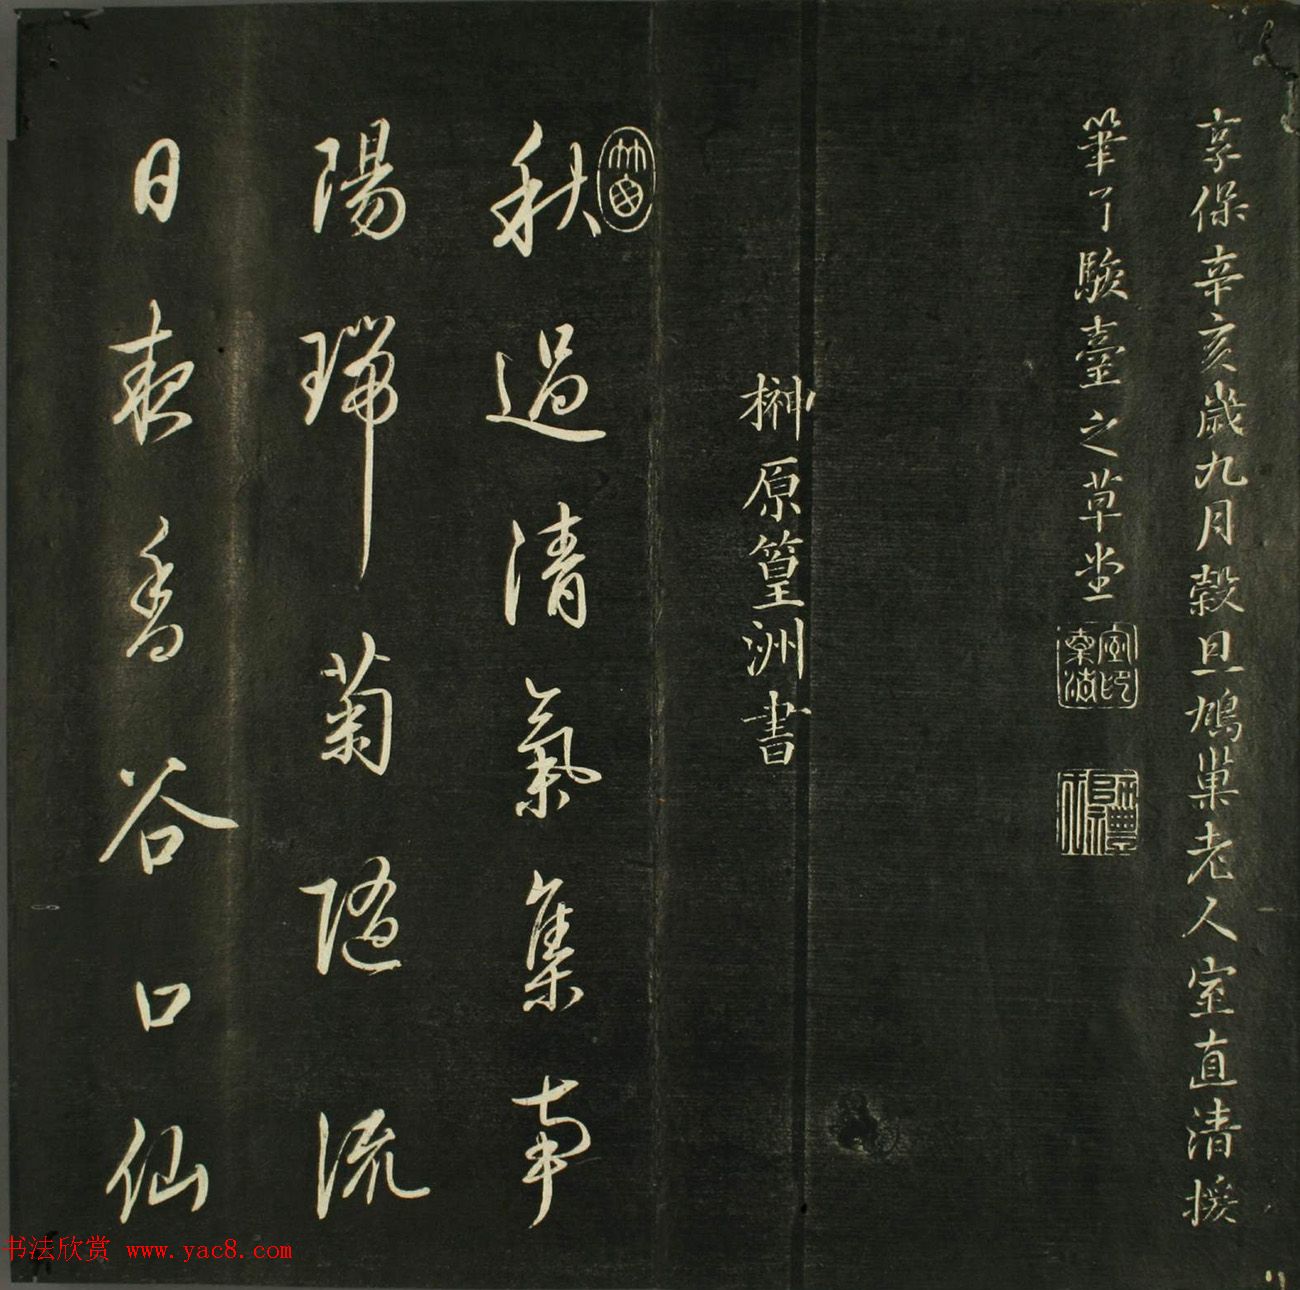 享保辛亥歲九月穀旦鳩巢老人室直清援
筆了駿臺之草堂
榊原篁洲書
秋過清氣集事
陽瑞菊隨流
日夜香谷口仙
书法欣赏 www.yac8.com